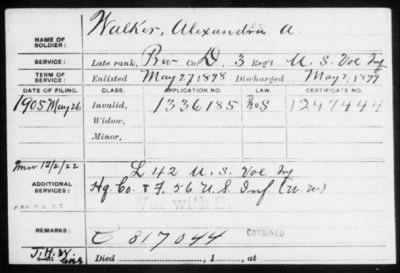 NAME OF SOLDIER: Walker, Alexandra A.
SERVICE: Late rank, Prv Co. D, 3 Reg't U. S. Vol Inf
TERM OF SERVICE: Enlisted May 27, 1898 Discharged May 2, 1899
DATE OF FILING. CLASS. APPLICATION NO. LAW. CERTIFICATE NO.
1905 May 26 Invalid, 1336185 1247444
Widow,
Minor,
L 42 U. S. Vol Inf
ADDITIONAL SERVICES: Hq. Co. & F. 56 U S Inf (W. W.)
War with
REMARKS: C 817044 COMBINED
Died , 1 , at